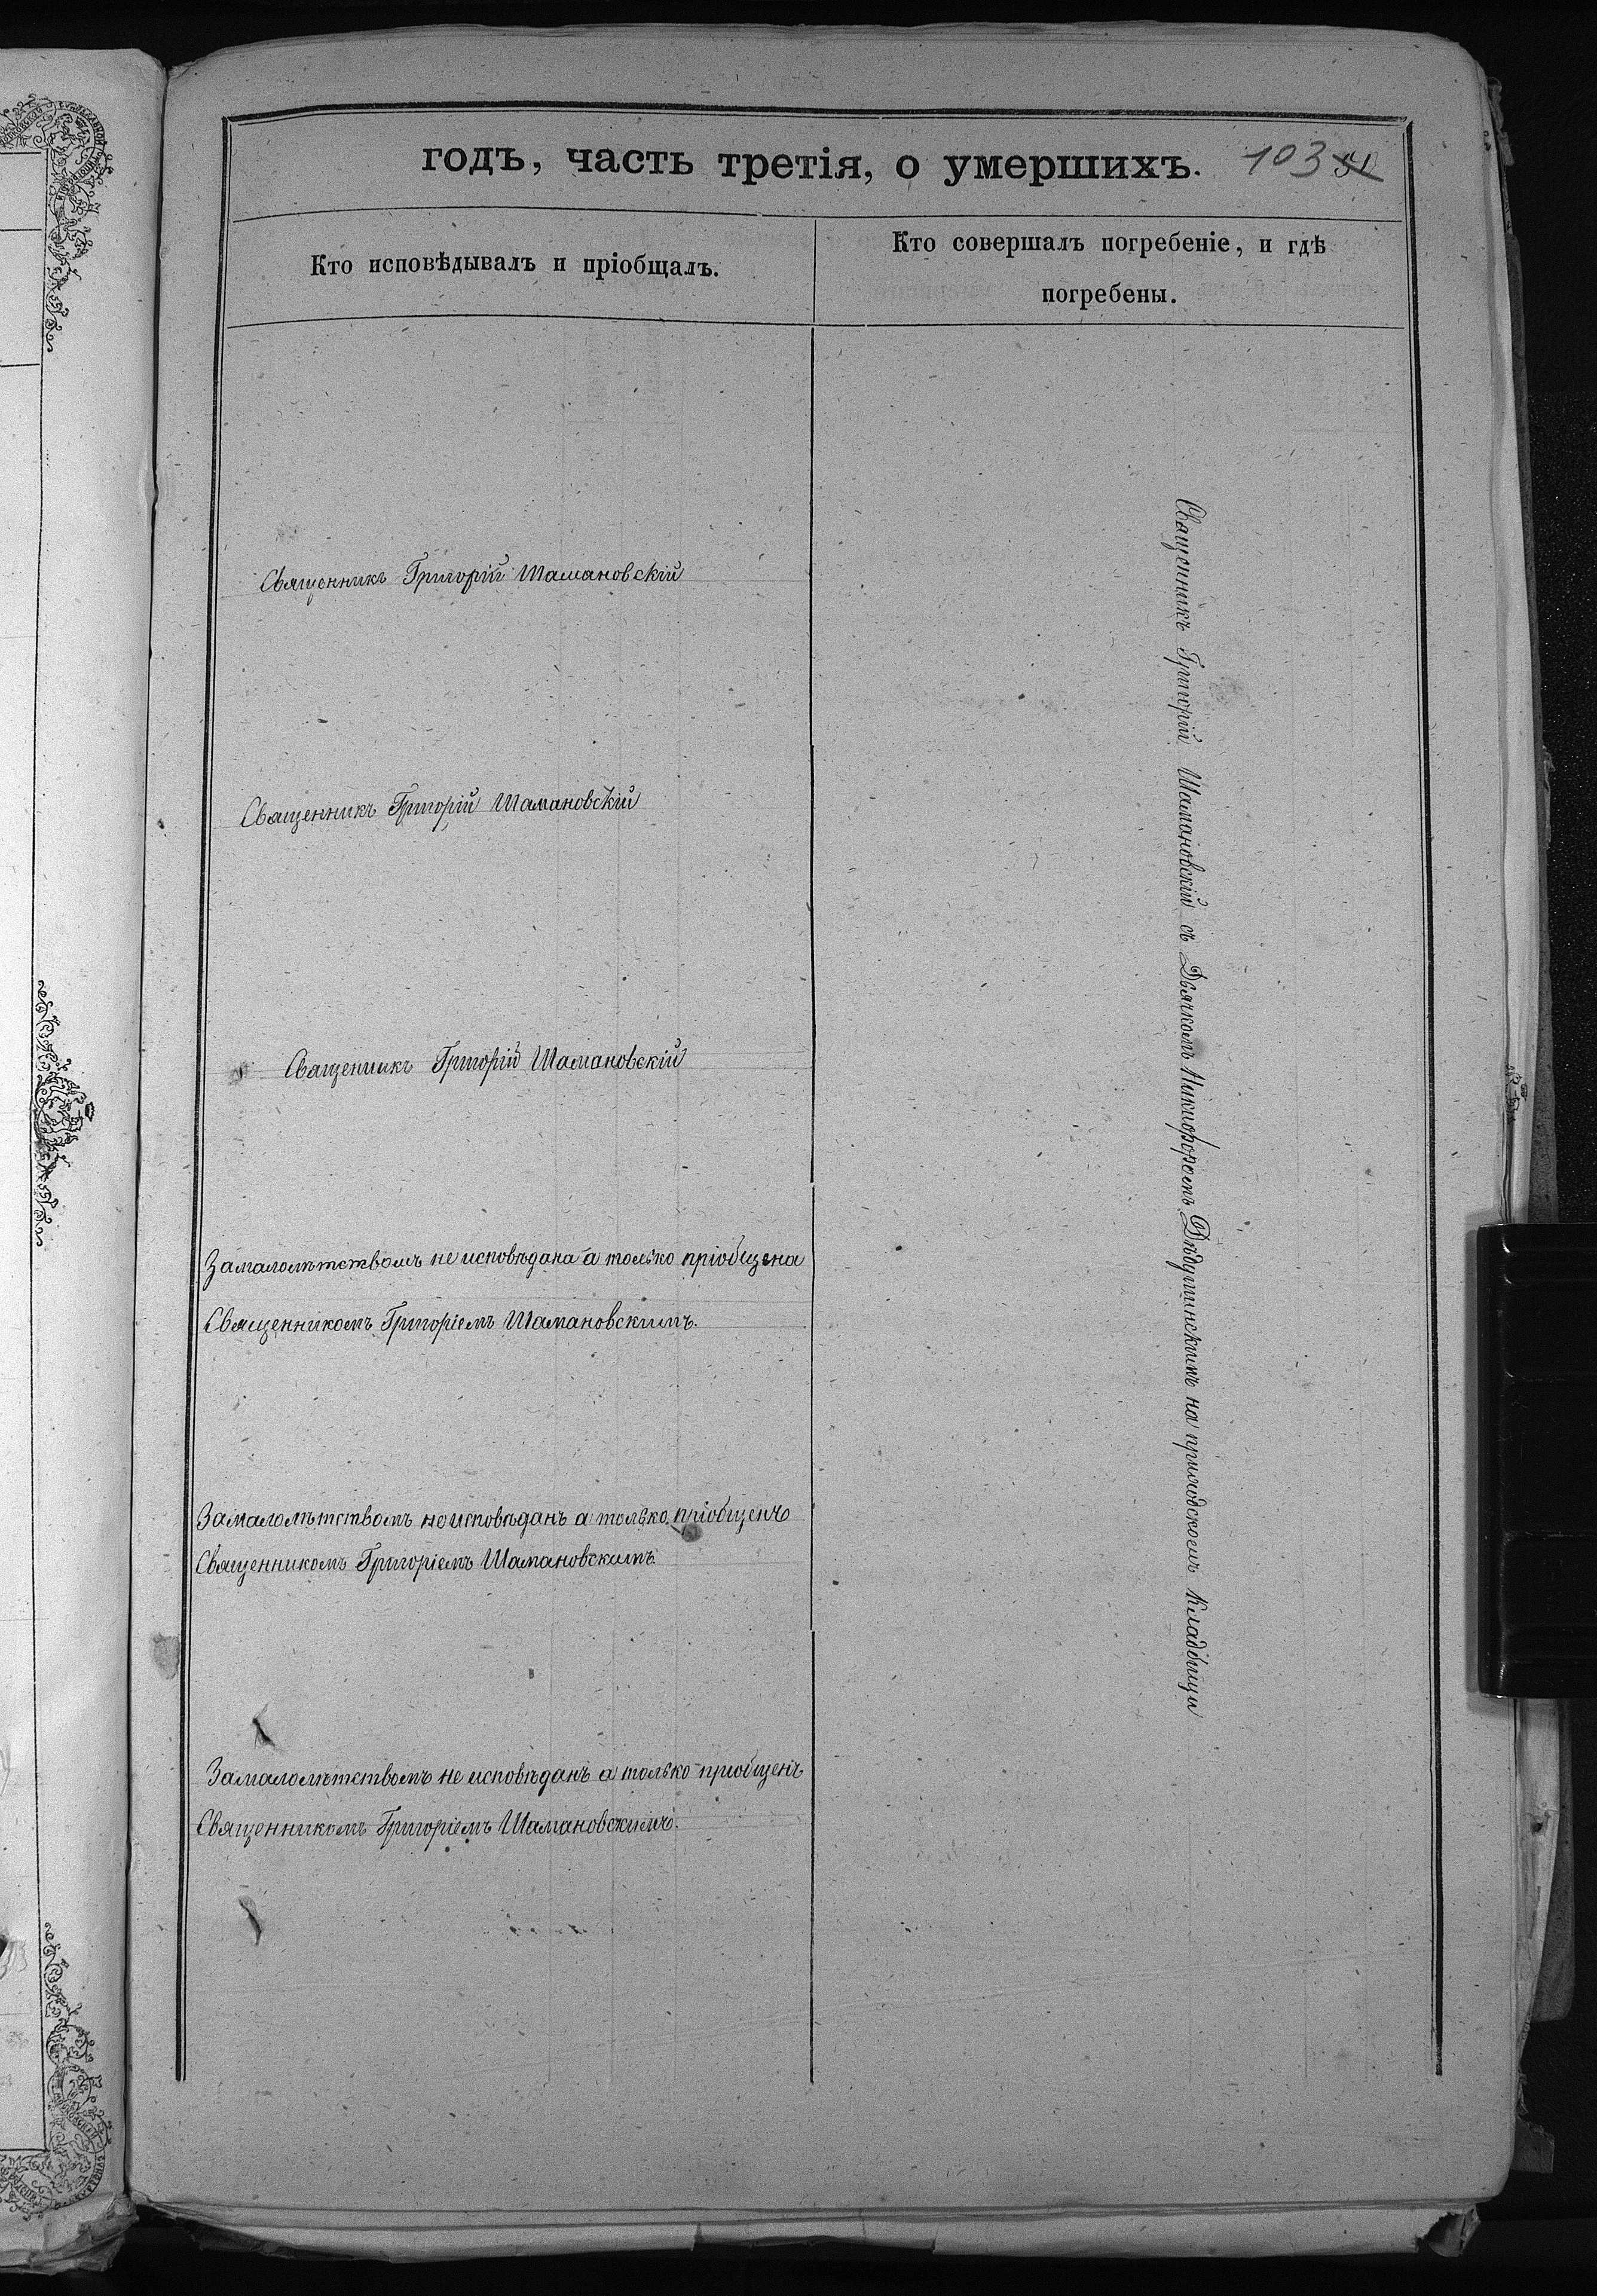 годъ, часть третія, о умершихъ. 103
Кто исповѣдывалъ и пріобщалъ.
Кто совершалъ погребеніе, и гдѣ
погребены.
Священникъ Григорій Шамановскій
Священникъ Григорій Шамановскій
Священникъ Григорій Шамановскій
Замалолѣтствомъ не исповѣдана а только пріобщена
Священникомъ Григоріемъ Шамановскимъ.
Замалолѣтствомъ не исповѣданъ а только пріобщенъ
Священникомъ Григоріемъ Шамановскимъ
Замалолѣтствомъ не исповѣданъ а только пріобщенъ
Священникомъ Григоріемъ Шамановскимъ.
Священникъ Григорій Шамановскій съ Дьячкомъ Никифоромъ на приходскомъ кладбищи